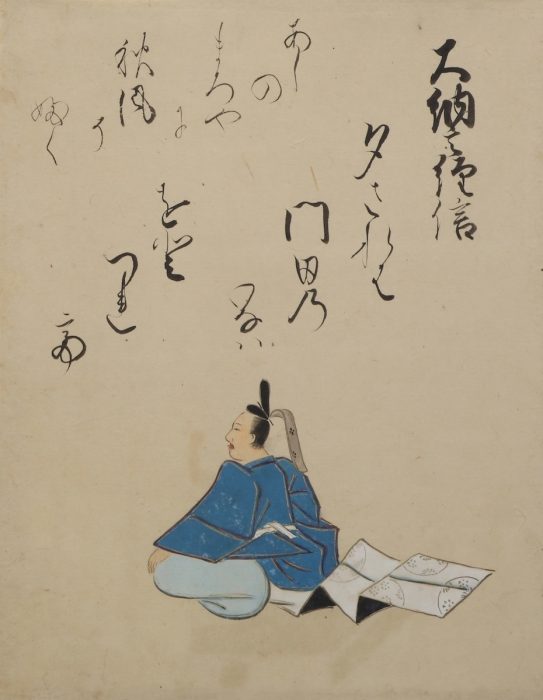 大納言経信
夕されは
門田乃
いなハ
をと
つれ
て
あし
の
まろや
に
秋風
そ
ふく